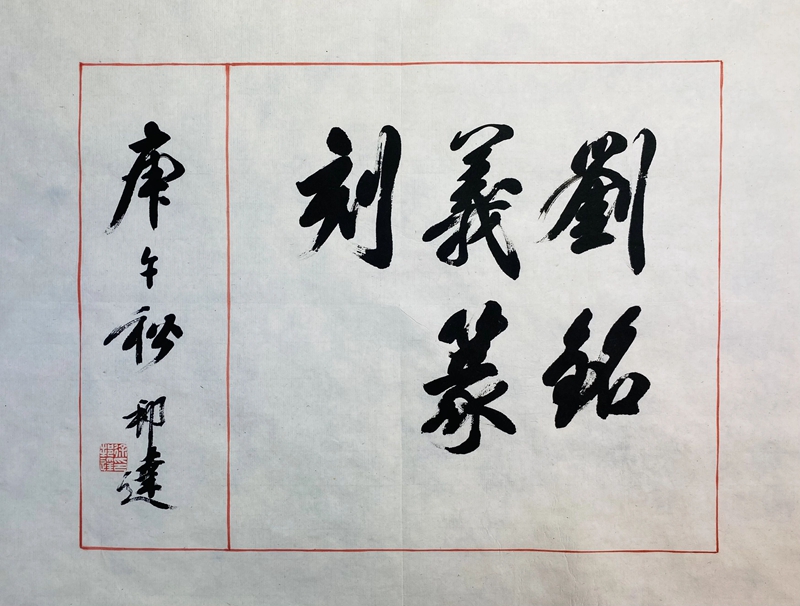 劉銘
義篆
刻
庚午秋 邦達